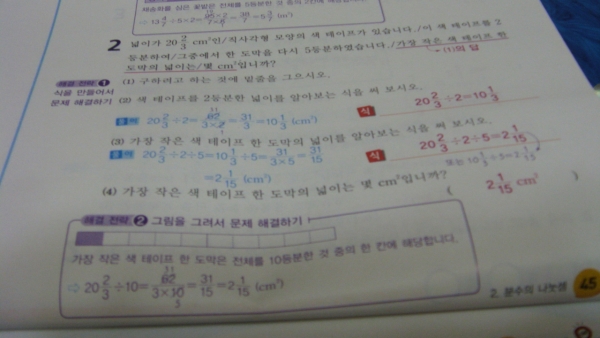 색 테이프를 심은 꽃밭은 전체를
⇨ 13 4/7 ÷5×2= 95×2/7×5 = 38/7 =5 3/7 (m²)
2 넓이가 20 2/3 cm²인/직사각형 모양의 색 테이프가 있습니다./이 색 테이프를 2
등분하여/그중에서 한 도막을 다시 5등분하였습니다./가장 작은 색 테이프 한
도막의 넓이는/몇 cm²입니까? (1)의 답
해결 전략 1 (1) 구하려고 하는 것에 밑줄을 그으시오.
식을 만들어서 (2) 색 테이프를 2등분한 넓이를 알아보는 식을 써 보시오.
문제 해결하기
예 20 2/3 ÷2= 62/3×2 = 31/3 =10 1/3 (cm²) 식 20 2/3 ÷2=10 1/3
(3) 가장 작은 색 테이프 한 도막의 넓이를 알아보는 식을 써 보시오.
예 20 2/3 ÷2÷5=10 1/3 ÷5= 31/3×5 = 31/15 식 20 2/3 ÷2÷5=2 1/15
=2 1/15 (cm²) 또는 10 1/3 ÷5=2 1/15
(4) 가장 작은 색 테이프 한 도막의 넓이는 몇 cm²입니까?
( 2 1/15 cm² )
해결 전략 2 그림을 그려서 문제 해결하기
가장 작은 색 테이프 한 도막은 전체를 10등분한 것 중의 한 칸에 해당합니다.
⇨ 20 2/3 ÷10= 62/3×10 = 31/15 =2 1/15 (cm²)
2. 분수의 나눗셈 45